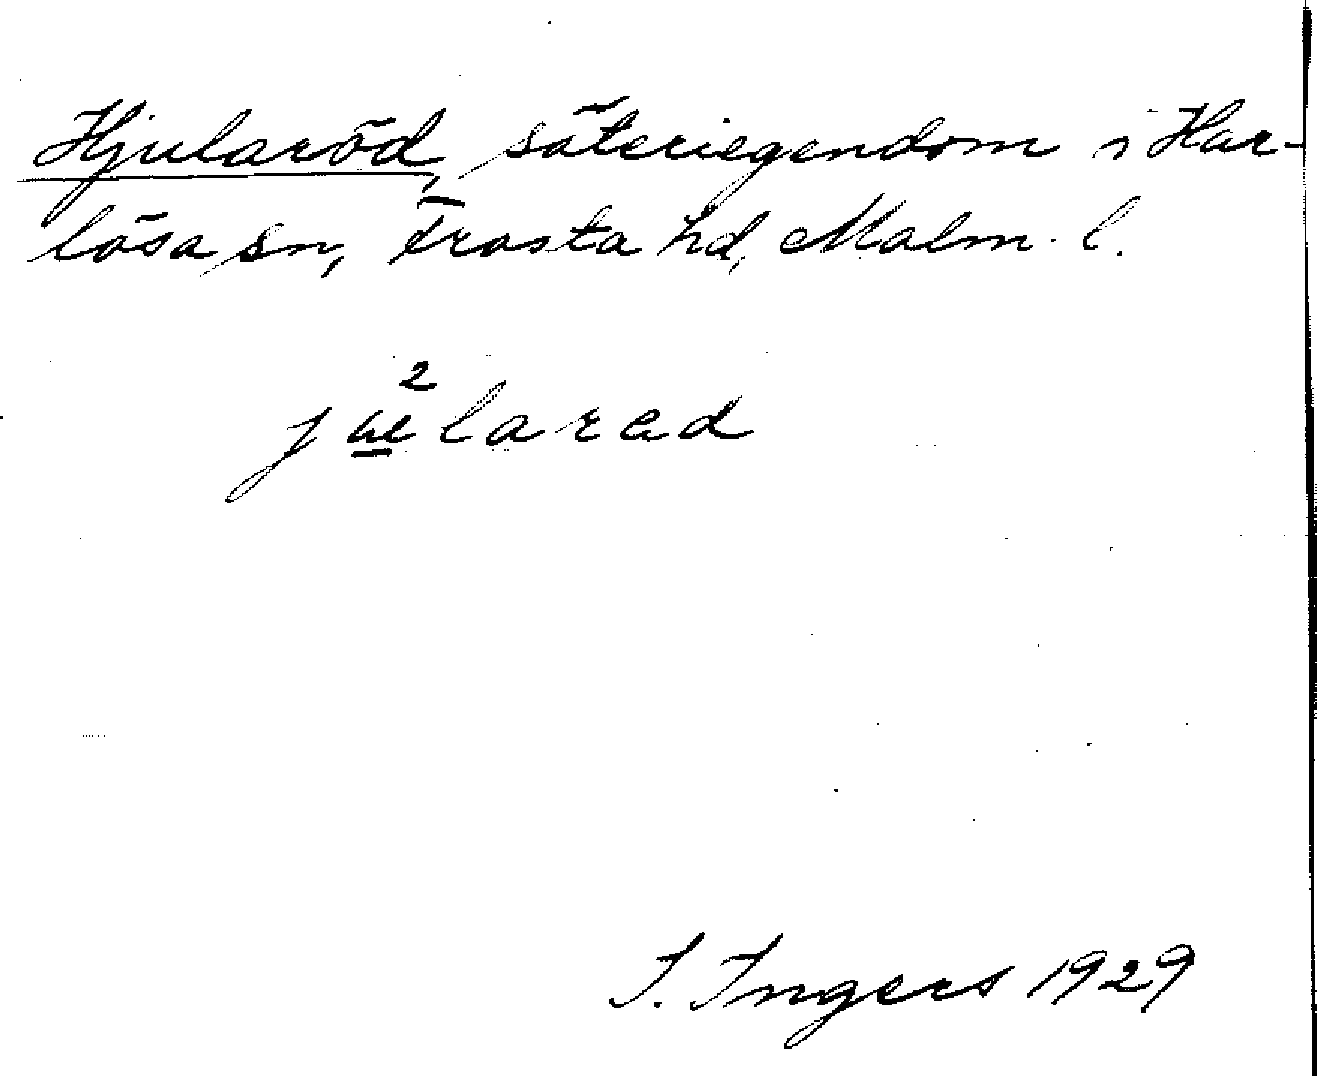 Hjularöd, säteriegendom i Har-
lösa sn, Frosta hd, Malm. l.
I. Ingers 1929